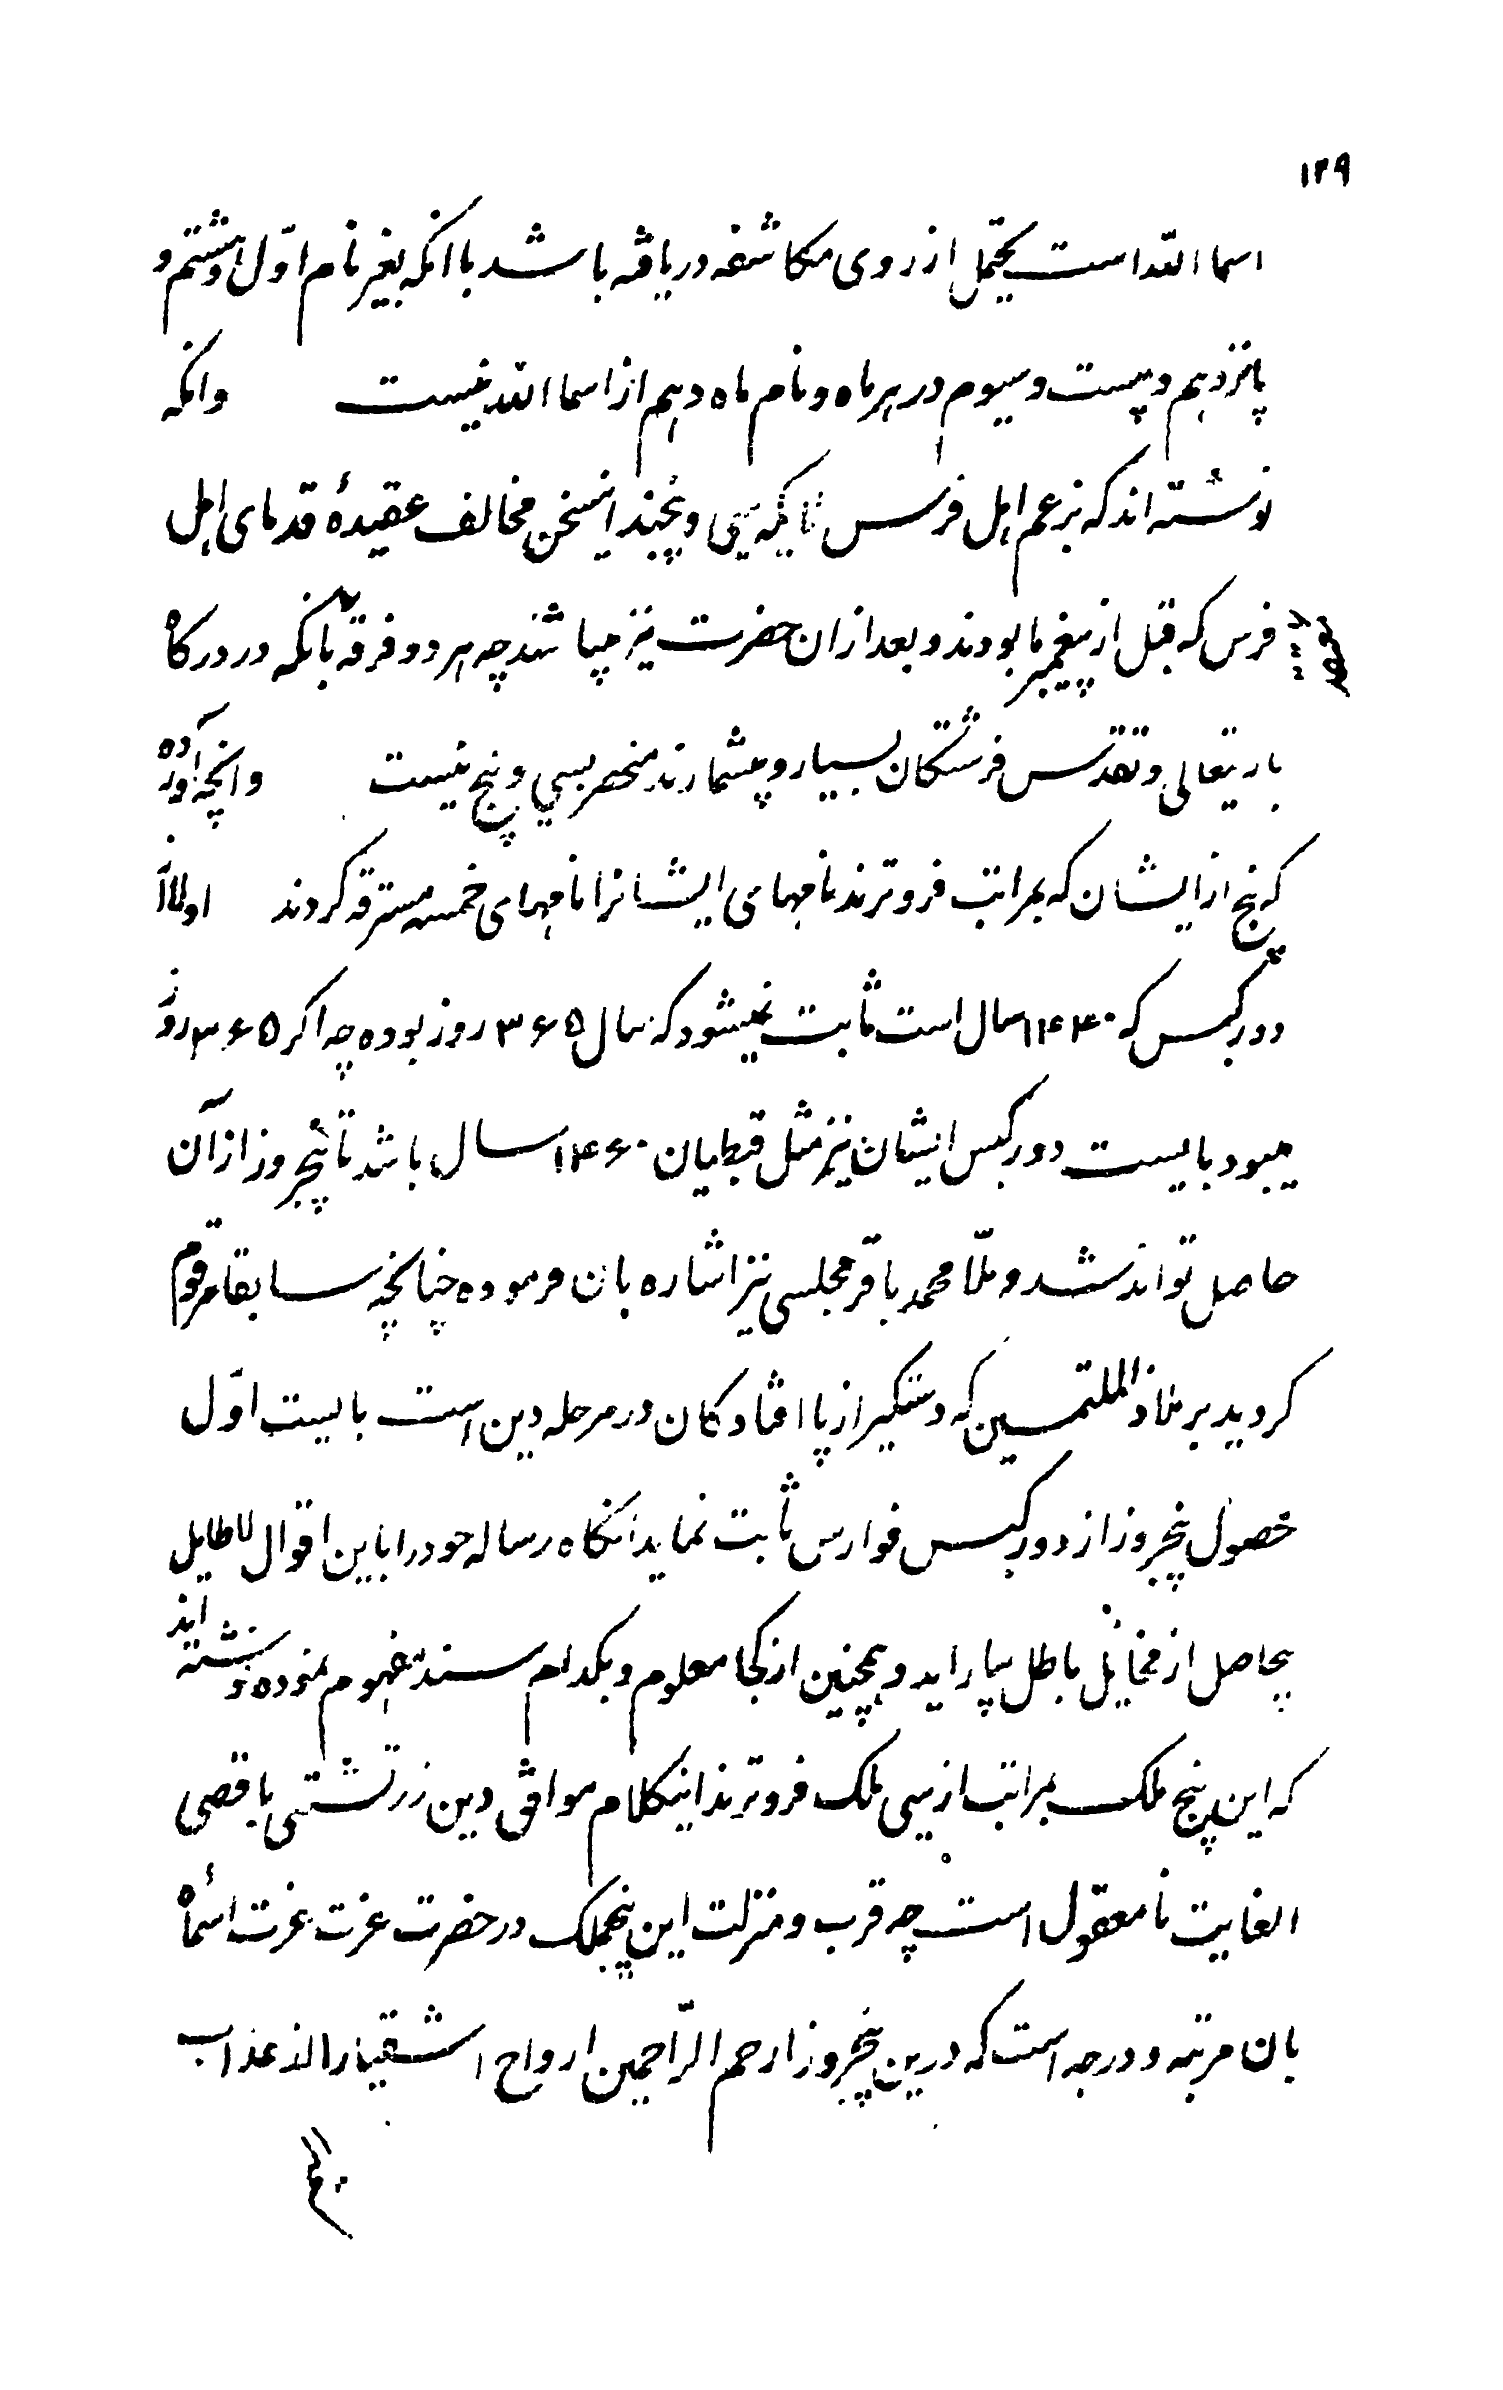 ۱۲۹
اسما الله است یحتمل از روی مکاشفه دریافه باشد با انکه بغیر نام اوّل و هشتم و
پانزدهم و بیست و سیوم در هر ماه و نام ماه دهم از اسما الله نیست وانکه
نوشته اند که بزعم اهل فرس ملایکه سی و پنجند اینسخن مخالف عقیدهٔ قدمای اهل
فرس که قبل از پیغمبر ما بودند و بعد از ان حضرت نیز میباشند چه هر دو فرقه بانکه در درکاه
باریتعالی و تقدس فرشتکان بسیار و بیشمارند منحصر بسی و پنج نیست وانچه آورده
که پنج از ایشان که بمراتب فروترند نامهای ایشانرا نامهای خمسه مسترقه کردند اولاً از
دور کبس که ۱۴۴۰ سال است ثابت نمیشود که سال ۳۶۵ روز بوده چه اکر ۳۶۵ روز
میبود بایست دور کبس ایشان نیز مثل قبطیان ۱۴۶۰ سال باشد تا پنجروز از آن
حاصل تواند شد و ملّا محمد باقر مجلسی نیز اشاره بان فرموده چنانچه سابقا مرقوم
کردید بر ملاذ الملتمسین که دستکیر از پا افتادکان در مرحله دین است بایست اوّل
حصول پنجروز از دور کبس فوارس ثابت نماید انکاه رساله خود را باین اقوال لاطایل
بیحاصل از مخایل باطل بیاراید و همچنین از کجا معلوم و بکدام سند مفهوم نموده نوشته اند
که این پنج ملک بمراتب از سی ملک فروترند اینکلام موافق دین زرتشتی باقصی
الغایت نامعقول است چه قرب و منزلت این پنجملک در حضرت عزت عزت اسماؤه
بان مرتبه و درجه است که درین پنجروز ارحم الرّاحمین ارواح اشقیارا از عذاب